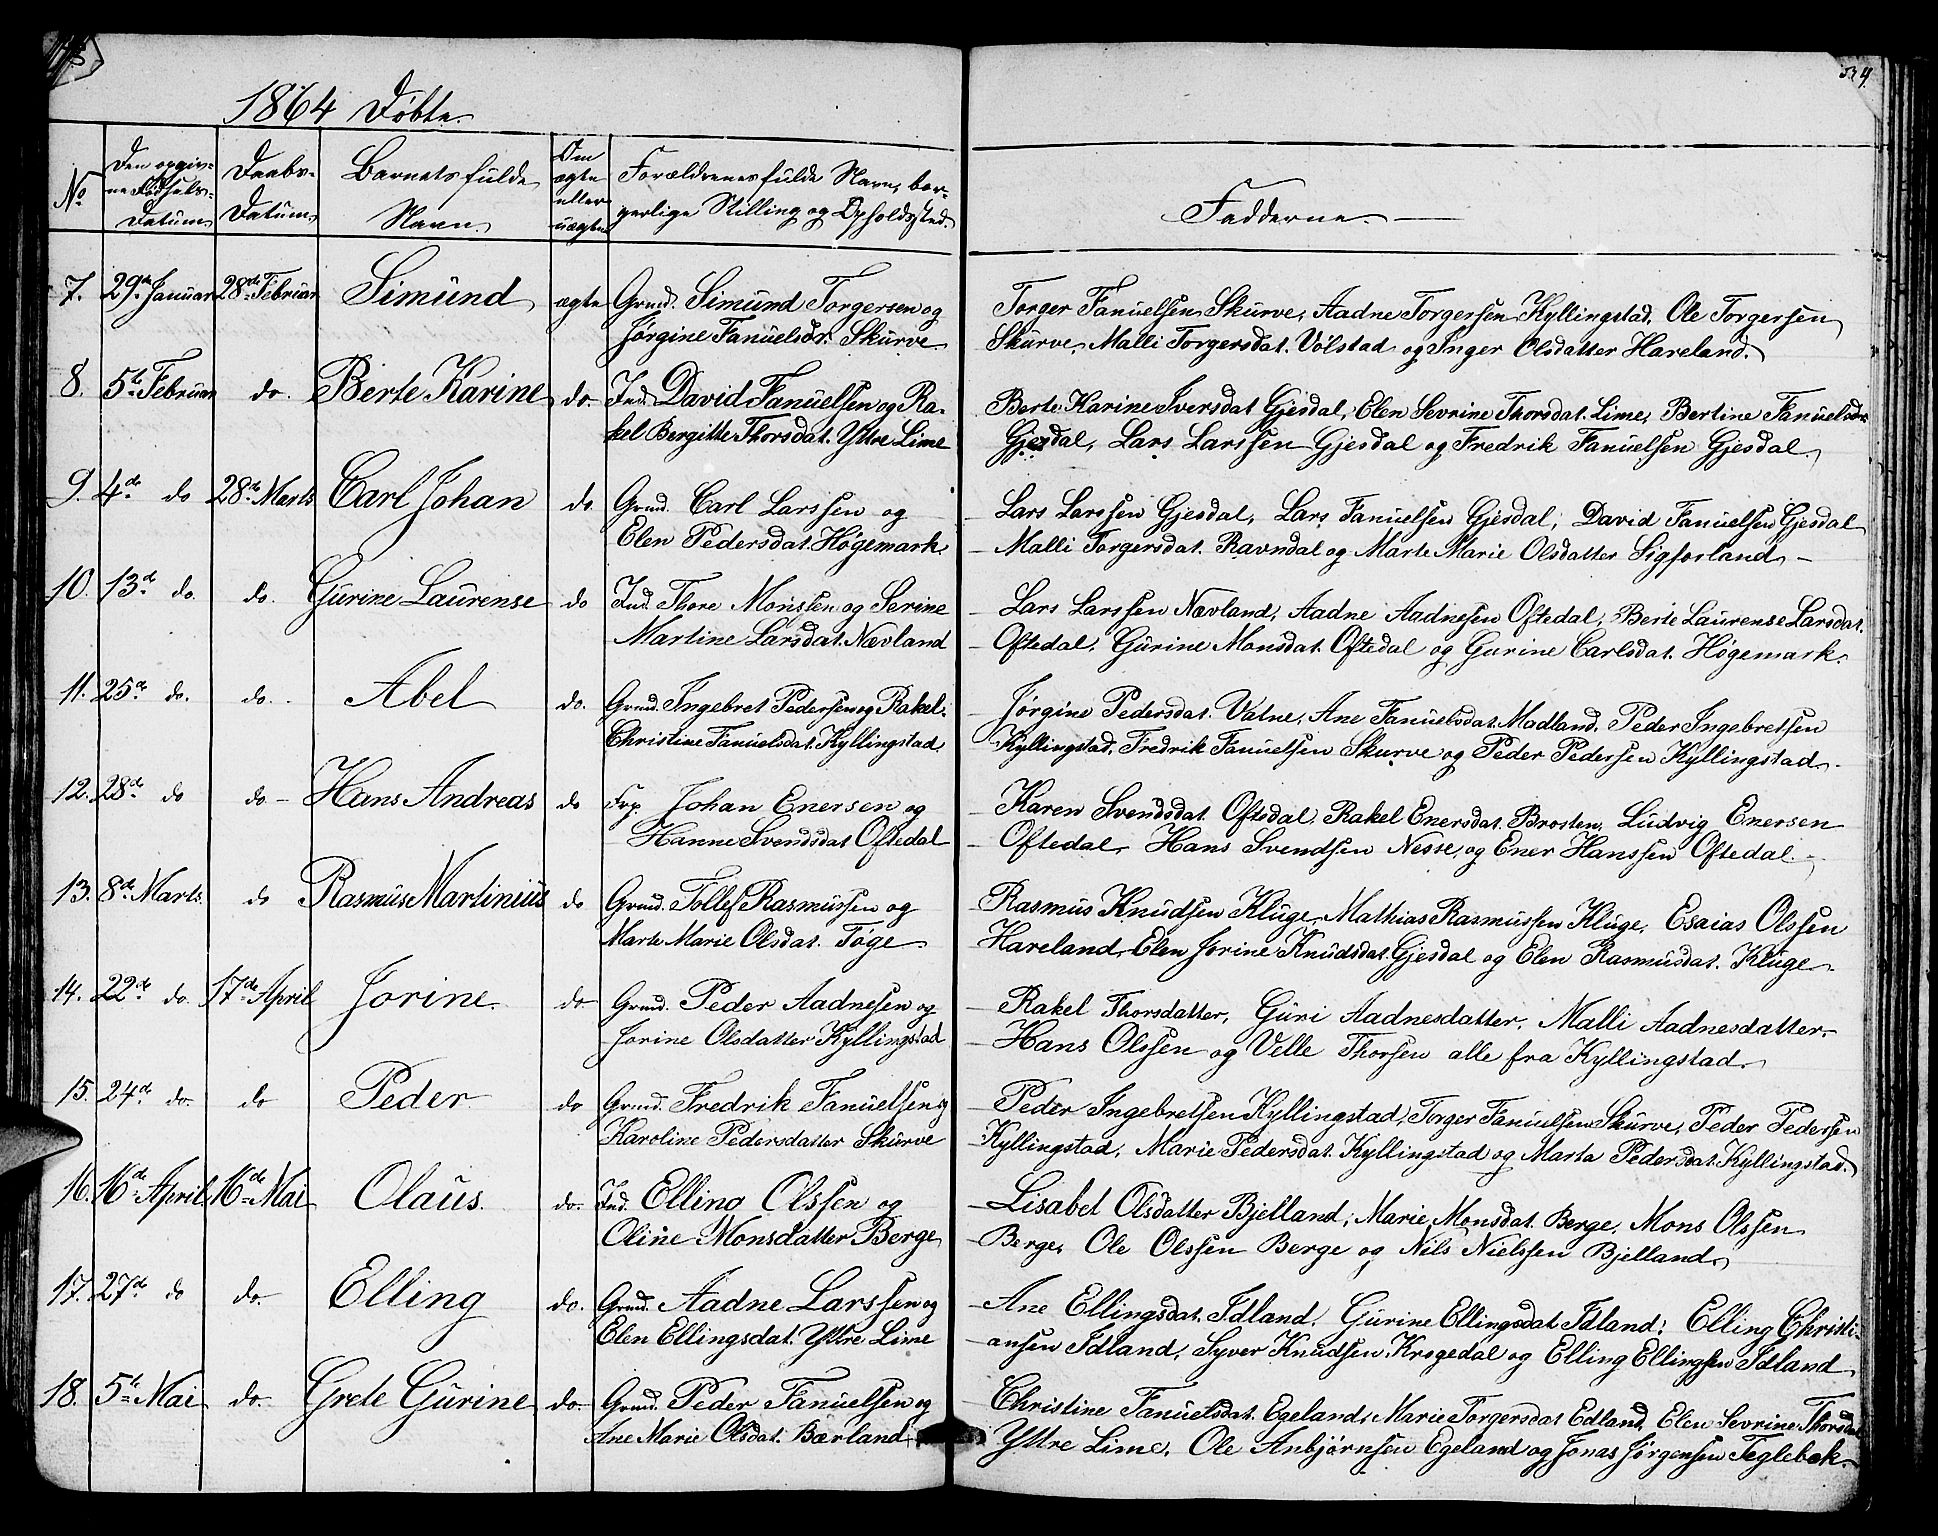 1864 Døbte
No
Den opgiv-
ne Fødsels-
Datum.
Daabs-
Datum.
Barnets fulde
Navn.
Om
ægte
eller
uægte
Forældrenes fulde Navn, bor-
gerlige Stilling og Opholdssted.
Fadderne.
7. 29de Januar 28de Februar Simund ægte Grmd. Simund Torgersen og
Jørgine Fanuelsdr. Skurve
Torger Fanuelsen Skurve, Aadne Torgersen Kyllingstad, Ole Torgersen
Skurve, Malli Torgersdat. Volstad og Inger Olsdatter Hareland.
8. 5te Februar do. Berte Karine do. Ind. David Fanuelsen og Ra-
kel Bergitte Thorsdat. Yttre Lime
Berte Karine Iversdat Gjesdal, Elen Sevrine Thorsdat. Lime, Bertine Fanuelsdr.
Gjesdal, Lars Larssen Gjesdal og Fredrik Fanuelsen Gjesdal.
9. 4de do 28de Marts Carl Johan do Grmd. Carl Larssen og
Elen Pedersdat. Høgemark.
Lars Larssen Gjesdal, Lars Fanuelsen Gjesdal, David Fanuelsen Gjesdal
Malli Torgersdat. Ravndal og Marte Marie Olsdatter Sigforland
10. 13de do. do. Gurine Laurense do Ind. Thore Monssen og Serine
Martine Larsdat. Nævland
Lars Larssen Nævland, Aadne Aadnesen Oftedal, Berte Laurense Larsdat.
Oftedal, Gurine Monsdat. Oftedal og Gurine Carlsdat. Høgemark.
11. 25de do. do. Abel do. Grmd. Ingebret Pedersen og Rakel
Christine Fanuelsdat. Kyllingstad
Jørgine Pedersdat. Vatne, Ane Fanuelsdat. Madland, Peder Ingebretsen
Kyllingstad, Fredrik Fanuelsen Skurve og Peder Pedersen Kyllingstad.
12. 28de do do Hans Andreas do Frp. Johan Enersen og
Hanne Svendsdat Oftedal
Karen Svendsdat. Oftedal, Rakel Enersdat. Brosten, Ludvig Enersen
Oftedal, Hans Svendsen Nesse og Ener Hanssen Oftedal.
13. 8de Marts. do Rasmus Martinius do Grmd. Tollef Rasmussen og
Marte Marie Olsdat. Tøge
Rasmus Knudsen Kluge, Mathias Rasmussen Kluge, Esaias Olssen
Hareland, Elen Jorine Knudsdat. Gjesdal og Elen Rasmusdat. Kluge.
14. 22de do. 17de April Jorine do Grmd. Peder Aadnesen og
Jorine Olsdatter Kyllingstad
Rakel Thorsdatter, Guri Aadnesdatter, Malli Aadnesdatter,
Hans Olssen og Velle Thorsen alle fra Kyllingstad.
15. 24de do. do Peder do Grmd. Fredrik Fanuelsen og
Karoline Pedersdatter Skurve
Peder Ingebretsen Kyllingstad, Torger Fanuelsen Skurve, Peder Pedersen
Kyllingstad, Marie Pedersdat. Kyllingstad og Marta Pedersdat. Kyllingstad.
16. 16de April. 16de Mai Olaus. do. Ind. Elling Olssen og
Oline Monsdatter Berge
Lisabet Olsdatter Bjelland, Marie Monsdat. Berge, Mons Olssen
Berge, Ole Olssen Berge og Nils Nielssen Bjelland.
17. 27de do do. Elling do. Grmd. Aadne Larssen og
Elen Ellingsdat. Yttre Lime
Ane Ellingsdat. Idland, Gurine Ellingsdat Idland, Elling Christi-
ansen Idland, Syver Knudsen Krogedal og Elling Ellingsen Idland
18. 5te Mai do. Grete Gurine do. Grmd. Peder Fanuelsen og
Ane Marie Olsdat. Bærland
Christine Fanuelsdat. Egeland, Marie Torgersdat Edland, Elen Sevrine Thorsdat
Yttre Lime, Ole Anbjørnsen Egeland og Jonas Jørgensen Teglebæk.